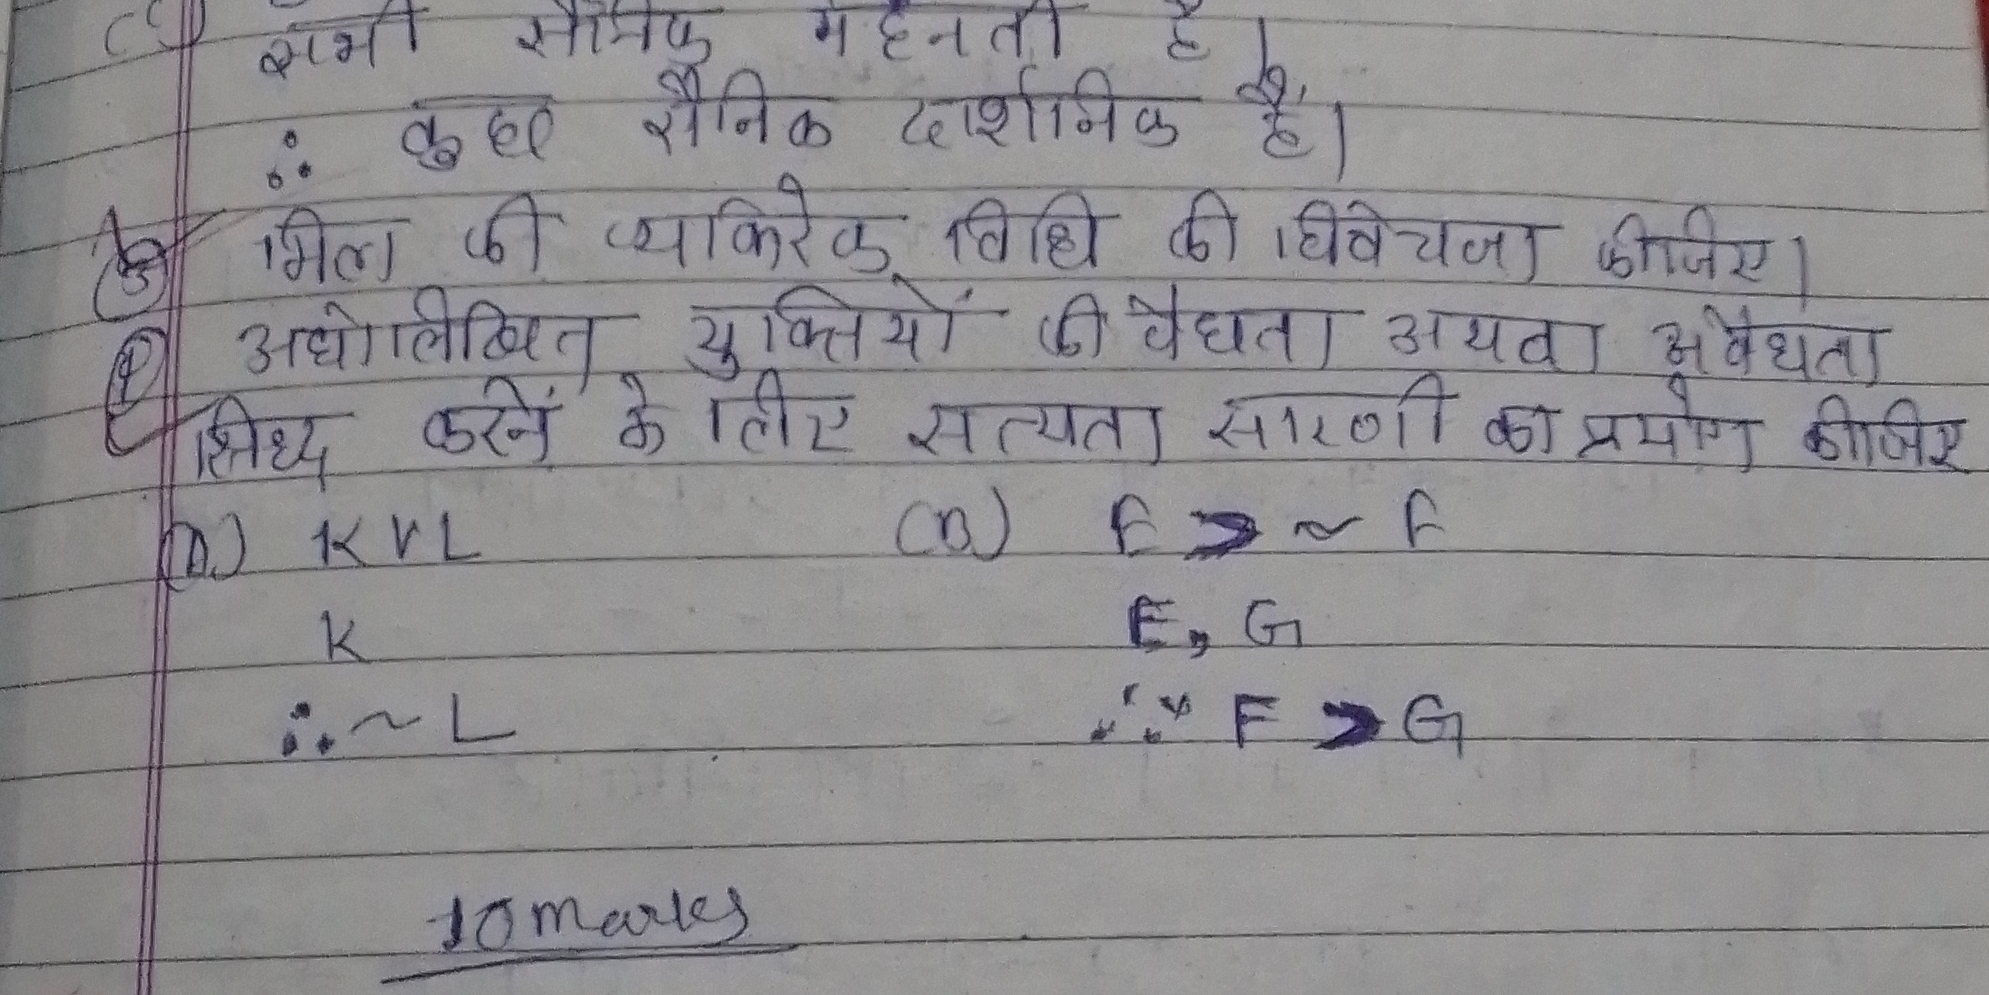 सभी सैनिक मेहनती है।
∴ कुछ सैनिक दार्शनिक है।
③ मिल की व्यतिरेक विधि की विवेचना कीजिए।
④ अधोलिखित युक्तियों की वैधता अथवा अवैधता
सिध्द करनें के लिए सत्यता सारणी का प्रयोग कीजिए
(A) K V L (B) E ⊃ ~ F
K E, G
∴ ~ L ∴ F ⊃ G
10 marks